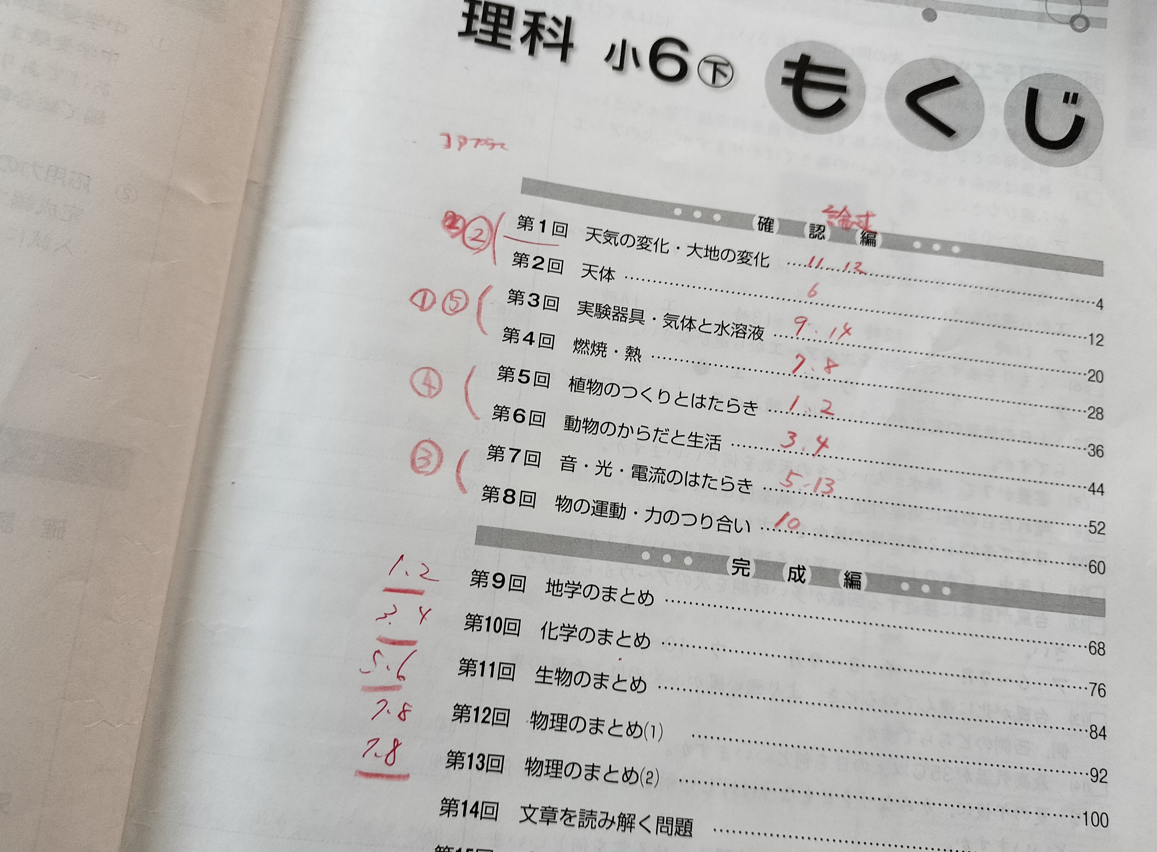 理科 小6下 もくじ
コアプラス
論述
確認編
② 第1回 天気の変化・大地の変化 11.12 4
第2回 天体 6 12
①⑤ 第3回 実験器具・気体と水溶液 9.14 20
第4回 燃焼・熱 7.8 28
④ 第5回 植物のつくりとはたらき 1.2 36
第6回 動物のからだと生活 3.4 44
③ 第7回 音・光・電流のはたらき 5.13 52
第8回 物の運動・力のつり合い 10 60
完成編
1.2 第9回 地学のまとめ 68
3.4 第10回 化学のまとめ 76
5.6 第11回 生物のまとめ 84
7.8 第12回 物理のまとめ(1) 92
7.8 第13回 物理のまとめ(2) 100
第14回 文章を読み解く問題